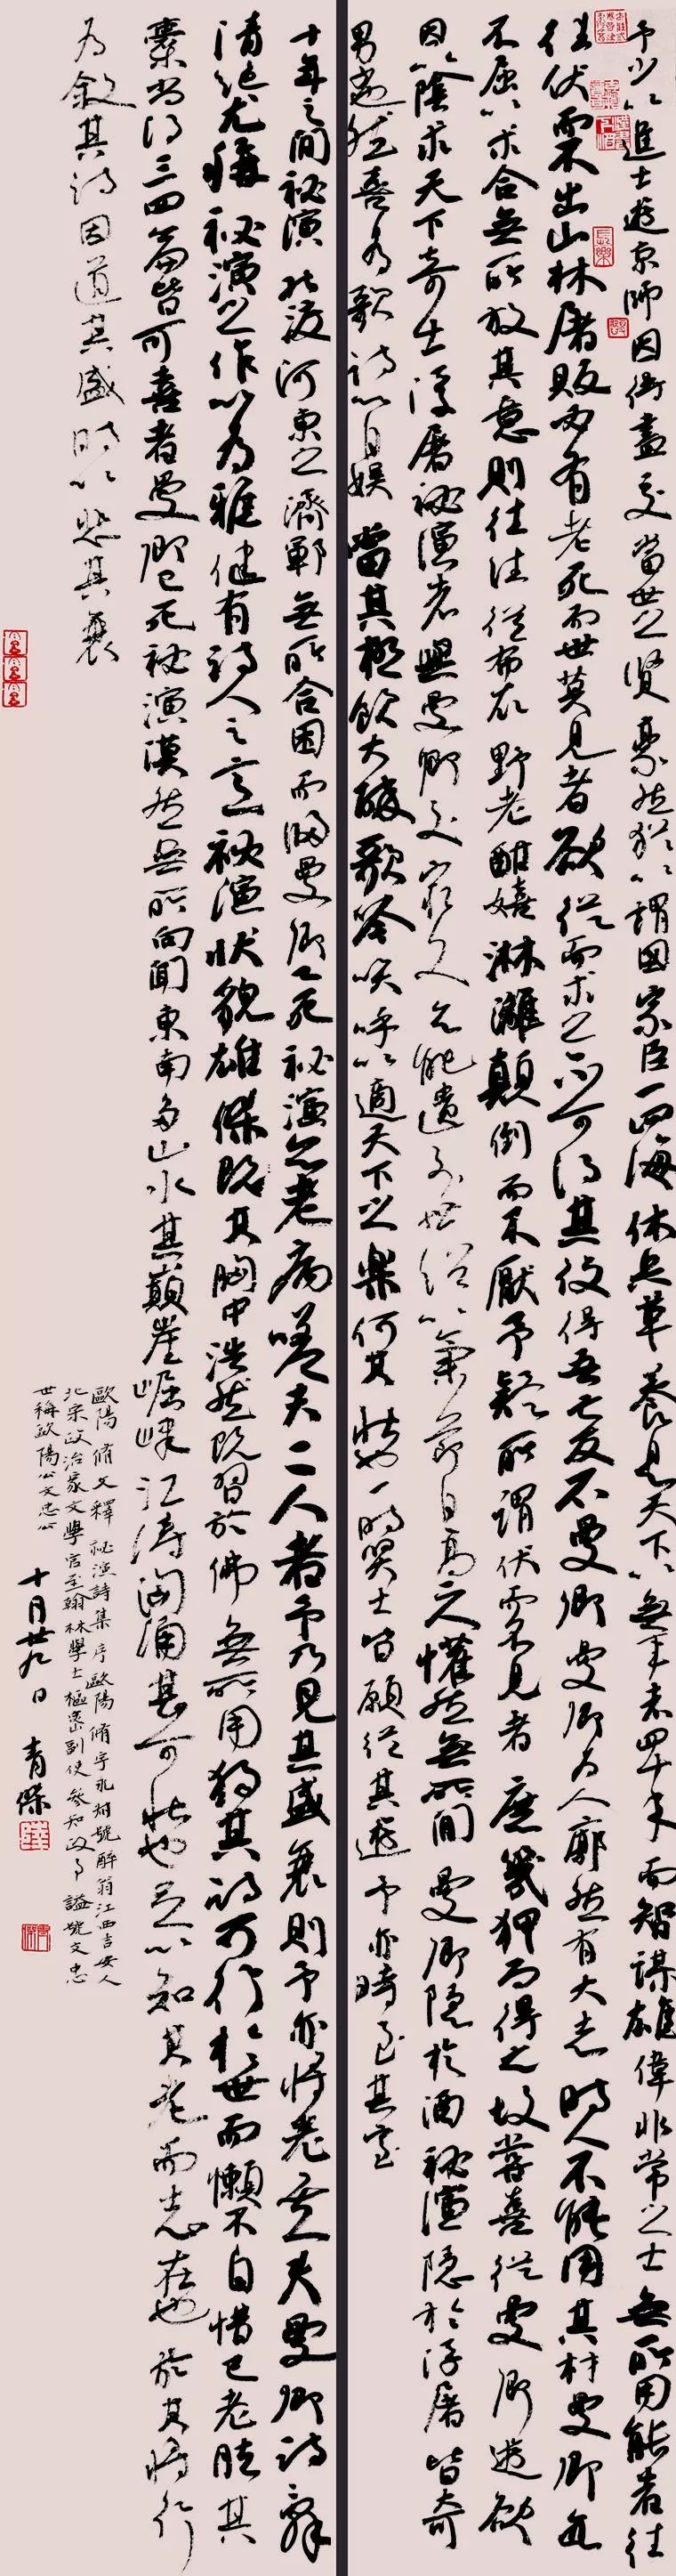 予少以進士遊京師因得盡交當世之賢豪然猶以謂國家臣一四海休兵革養息天下以無事者四十年而智謀雄偉非常之士無所用能者往
往伏而不出山林屠販必有老死而世莫見者欲從而求之不可得其後得吾亡友石曼卿曼卿為人廓然有大志時人不能用其材曼卿亦
不屈以求合無所放其意則往往從布衣野老酣嬉淋漓顛倒而不厭予疑所謂伏而不見者庶幾狎而得之故嘗喜從曼卿遊欲
因以陰求天下奇士浮屠祕演者與曼卿交最久亦能遺外世俗以氣節自高二人懽然無所間曼卿隱於酒祕演隱於浮屠皆奇
男子也然喜為歌詩以自娛當其極飲大醉歌吟笑呼以適天下之樂何其壯也一時賢士皆願從其遊予亦時至其室
十年之間祕演北渡河東之濟鄆無所合困而歸曼卿已死祕演亦老病嗟夫二人者予乃見其盛衰則予亦將老矣夫曼卿詩辭
清絕尤稱祕演之作以為雅健有詩人之意祕演狀貌雄傑既其胸中浩然既習於佛無所用獨其詩可行於世而懶不自惜已老胠其
橐尚得三四百篇皆可喜者曼卿已死祕演漠然無所向聞東南多山水其巔崖崛峍江濤洶湧甚可壯也足以知其老而志在也於其將行
為敘其詩因道其盛時以悲其衰
歐陽脩文釋祕演詩集序歐陽脩字永叔號醉翁江西吉安人
北宋政治家文學官至翰林學士樞密副使參知政事謚號文忠
世稱歐陽公文忠公
十月廿九日 青傑